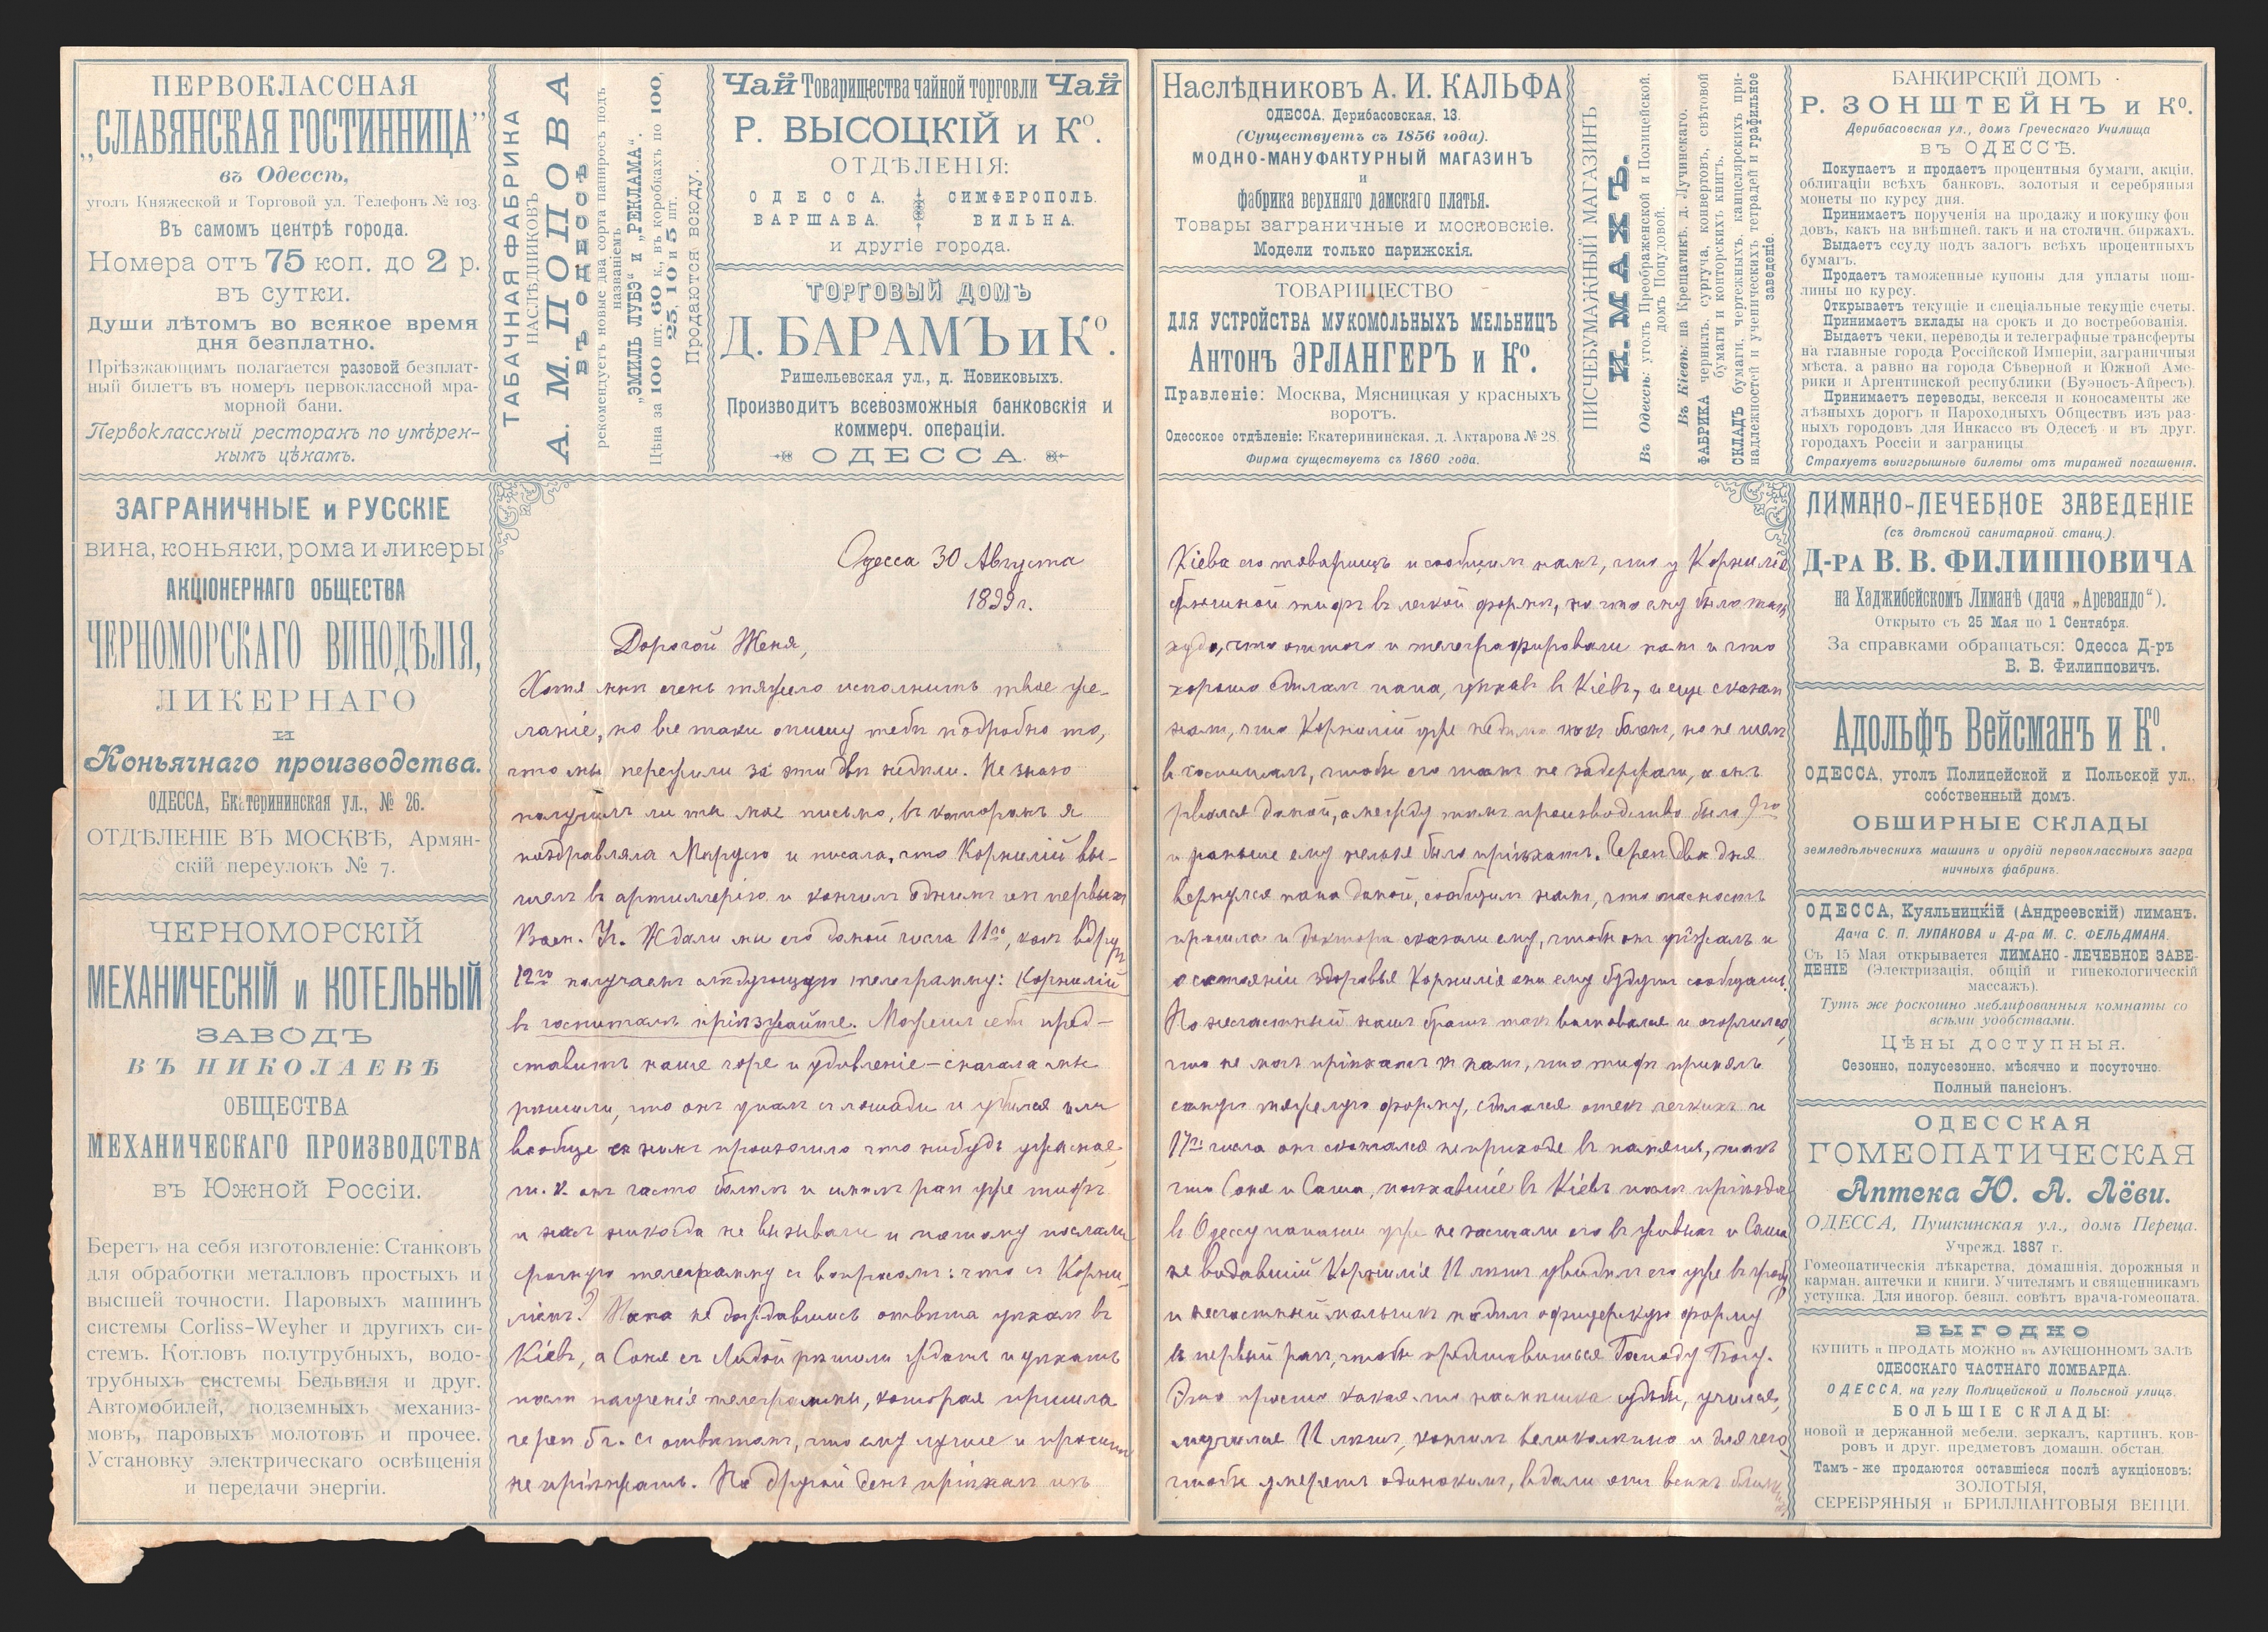 ПЕРВОКЛАССНАЯ
„СЛАВЯНСКАЯ ГОСТИННИЦА”
въ Одессѣ,
уголъ Княжеской и Торговой ул. Телефонъ № 103.
Въ самомъ центрѣ города.
Номера отъ 75 коп. до 2 р.
въ сутки.
Души лѣтомъ во всякое время
дня безплатно.
Пріѣзжающимъ полагается разовой безплат-
ный билетъ въ номеръ первоклассной мра-
морной бани.
Первоклассный ресторанъ по умѣрен-
нымъ цѣнамъ.
ТАБАЧНАЯ ФАБРИКА
НАСЛѢДНИКОВЪ
А. М. ПОПОВА
ВЪ ОДЕССѢ
рекомендуетъ новые два сорта папиросъ подъ
названіемъ
„ЭМИЛЬ ЛУБЭ“ и „РЕКЛАМА“.
Цѣна за 100 шт. 60 к., въ коробкахъ по 100,
25, 10 и 5 шт.
Продаются всюду.
Чай Товарищества чайной торговли Чай
Р. ВЫСОЦКІЙ и Кº.
ОТДѢЛЕНІЯ:
ОДЕССА, СИМФЕРОПОЛЬ.
ВАРШАВА. ВИЛЬНА.
и другіе города.
ТОРГОВЫЙ ДОМЪ
Д. БАРАМЪ и Кº.
Ришельевская ул., д. Новиковыхъ.
Производитъ всевозможныя банковскія и
коммерч. операціи.
ОДЕССА.
ЗАГРАНИЧНЫЕ и РУССКІЕ
вина, коньяки, рома и ликеры
АКЦІОНЕРНАГО ОБЩЕСТВА
ЧЕРНОМОРСКАГО ВИНОДѢЛІЯ,
ЛИКЕРНАГО
И
Коньячнаго производства.
ОДЕССА, Екатерининская ул., № 26.
ОТДѢЛЕНІЕ ВЪ МОСКВѢ, Армян-
скій переулокъ № 7.
ЧЕРНОМОРСКІЙ
МЕХАНИЧЕСКІЙ и КОТЕЛЬНЫЙ
ЗАВОДЪ
ВЪ НИКОЛАЕВѢ
ОБЩЕСТВА
МЕХАНИЧЕСКАГО ПРОИЗВОДСТВА
въ Южной Россіи.
Беретъ на себя изготовленіе: Станковъ
для обработки металловъ простыхъ и
высшей точности. Паровыхъ машинъ
системы Corliss-Weyher и другихъ си-
стемъ. Котловъ полутрубныхъ, водо-
трубныхъ системы Бельвиля и друг.
Автомобилей, подземныхъ механиз-
мовъ, паровыхъ молотовъ и прочее.
Установку электрическаго освѣщенія
и передачи энергіи.
Одесса 30 Августа
1899 г.
Дорогой Женя,
Хотя мнѣ очень тяжело исполнить твое же-
ланіе, но все таки опишу тебѣ подробно то,
что мы пережили за эти двѣ недѣли. Не знаю
получилъ ли ты мое письмо, въ которомъ я
поздравляла Марусю и писала, что Корнилій вы-
шелъ въ артиллерію и кончилъ однимъ изъ первыхъ
Воен. Уч. Ждали мы его домой числа 11го, какъ вдругъ
12го получаемъ слѣдующую телеграмму: Корнилій
въ госпиталѣ пріѣзжайте. Можешь себѣ пред-
ставить наше горе и удивленіе – сначала мы
рѣшили, что онъ упалъ съ лошади и убился или
вообще съ нимъ произошло что нибудь ужасное,
т. к. онъ часто болѣлъ и имѣлъ разъ уже тифъ
и насъ никогда не вызывали и потому послали
срочную телеграмму съ вопросомъ: что съ Корни-
ліемъ? Папа не дождавшись отвѣта уѣхалъ въ
Кіевъ, а Соня съ Лидой рѣшили ждать и уѣхать
послѣ полученія телеграммы, которая пришла
черезъ 5 ч. съ отвѣтомъ, что ему лучше и просимъ
не пріѣзжать. На другой день пріѣхалъ изъ
Наслѣдниковъ А. И. КАЛЬФА
ОДЕССА, Дерибасовская, 13.
(Существуетъ съ 1856 года).
МОДНО-МАНУФАКТУРНЫЙ МАГАЗИНЪ
и
фабрика верхняго дамскаго платья.
Товары заграничные и московскіе.
Модели только парижскія.
ТОВАРИЩЕСТВО
ДЛЯ УСТРОЙСТВА МУКОМОЛЬНЫХЪ МЕЛЬНИЦЪ
Антонъ ЭРЛАНГЕРЪ и Кº.
Правленіе: Москва, Мясницкая у красныхъ
воротъ.
Одесское отдѣленіе: Екатерининская, д. Актарова № 28.
Фирма существуетъ съ 1860 года.
ПИСЧЕБУМАЖНЫЙ МАГАЗИНЪ
И. МАХЪ.
Въ Одессѣ: уголъ Преображенской и Полицейской,
домъ Попудовой.
Въ Кіевѣ: на Крещатикѣ, д. Лучинскаго.
ФАБРИКА чернилъ, сургуча, конвертовъ, свѣтовой
бумаги и конторскихъ книгъ.
СКЛАДЪ бумаги, чертежныхъ, канцелярскихъ при-
надлежностей и ученическихъ тетрадей и графильное
заведеніе.
БАНКИРСКІЙ ДОМЪ
Р. ЗОНШТЕЙНЪ и Кº.
Дерибасовская ул., домъ Греческаго Училища
въ ОДЕССѢ.
Покупаетъ и продаетъ процентныя бумаги, акціи,
облигаціи всѣхъ банковъ, золотыя и серебряныя
монеты по курсу дня.
Принимаетъ порученія на продажу и покупку фон
довъ, какъ на внѣшней, такъ и на столичн. биржахъ.
Выдаетъ ссуду подъ залогъ всѣхъ процентныхъ
бумагъ.
Продаетъ таможенные купоны для уплаты пош-
лины по курсу.
Открываетъ текущіе и спеціальные текущіе счеты.
Принимаетъ вклады на срокъ и до востребованія.
Выдаетъ чеки, переводы и телеграфные трансферты
на главные города Россійской Имперіи, заграничныя
мѣста, а равно на города Сѣверной и Южной Аме-
рики и Аргентинской республики (Буэносъ-Айресъ).
Принимаетъ переводы, векселя и коносаменты же
лѣзныхъ дорогъ и Пароходныхъ Обществъ изъ раз-
ныхъ городовъ для Инкассо въ Одессѣ и въ друг.
городахъ Россіи и заграницы
Страхуетъ выигрышные билеты отъ тиражей погашенія.
Кіева его товарищъ и сообщилъ намъ, что у Корнилія
брюшной тифъ въ легкой формѣ, но что ему было такъ
худо, что оттого и телеграфировали намъ и что
хорошо сдѣлалъ папа, уѣхавъ въ Кіевъ, и еще сказалъ
намъ, что Корнилій уже недѣлю какъ боленъ, но не шелъ
въ госпиталь, чтобы его тамъ не задержали, а онъ
рвался домой, а между тѣмъ производство было 9го
и раньше ему нельзя было пріѣхать. Черезъ два дня
вернулся папа домой, сообщилъ намъ, что опасность
прошла и доктора сказали ему, чтобы онъ уѣзжалъ и
о состояніи здоровья Корнилія они ему будутъ сообщать.
Но несчастный нашъ братъ такъ волновался и огорчился,
что не могъ пріѣхать къ намъ, что тифъ принялъ
самую тяжелую форму, сдѣлался отекъ легкихъ и
17го числа онъ скончался не приходя въ память, такъ
что Соня и Саша, поѣхавшіе въ Кіевъ послѣ пріѣзда
въ Одессу папаши уже не застали его въ живыхъ и Саша
не видавшій Корнилія 11 лѣтъ увидѣлъ его уже въ гробу
и несчастный мальчикъ надѣлъ офицерскую форму
въ первый разъ, чтобы представиться Господу Богу.
Это просто какая-то насмѣшка судьбы, учился,
мучился 11 лѣтъ, кончилъ великолѣпно и для чего,
чтобы умереть одинокимъ, вдали отъ всѣхъ близкихъ
ЛИМАНО-ЛЕЧЕБНОЕ ЗАВЕДЕНІЕ
(съ дѣтской санитарной станц.).
Д-РА В. В. ФИЛИППОВИЧА
на Хаджибейскомъ Лиманѣ (дача „Аревандо“).
Открыто съ 25 Мая по 1 Сентября.
За справками обращаться: Одесса Д-ръ
В. В. Филипповичъ.
Адольфъ Вейсманъ и Кº.
ОДЕССА, уголъ Полицейской и Польской ул.,
собственный домъ.
ОБШИРНЫЕ СКЛАДЫ
земледѣльческихъ машинъ и орудій первоклассныхъ загра
ничныхъ фабрикъ.
ОДЕССА, Куяльницкій (Андреевскій) лиманъ.
Дача С. П. ЛУПАКОВА и Д-ра М. С. ФЕЛЬДМАНА.
Съ 15 Мая открывается ЛИМАНО-ЛЕЧЕБНОЕ ЗАВЕ-
ДЕНІЕ (Электризація, общій и гинекологическій
массажъ).
Тутъ же роскошно меблированныя комнаты со
всѣми удобствами.
Цѣны доступныя.
Сезонно, полусезонно, мѣсячно и посуточно.
Полный пансіонъ.
ОДЕССКАЯ
ГОМЕОПАТИЧЕСКАЯ
Аптека Ю. А. Лёви.
ОДЕССА, Пушкинская ул., домъ Переца.
Учрежд. 1887 г.
Гомеопатическія лѣкарства, домашнія, дорожныя и
карман. аптечки и книги. Учителямъ и священникамъ
уступка. Для иногор. безпл. совѣтъ врача-гомеопата.
ВЫГОДНО
КУПИТЬ и ПРОДАТЬ МОЖНО въ АУКЦІОННОМЪ ЗАЛѢ
ОДЕССКАГО ЧАСТНАГО ЛОМБАРДА.
ОДЕССА, на углу Полицейской и Польской улицъ.
БОЛЬШІЕ СКЛАДЫ:
новой и держанной мебели, зеркалъ, картинъ, ков-
ровъ и друг. предметовъ домашн. обстан.
Тамъ-же продаются оставшіеся послѣ аукціоновъ:
ЗОЛОТЫЯ,
СЕРЕБРЯНЫЯ и БРИЛЛІАНТОВЫЯ ВЕЩИ.